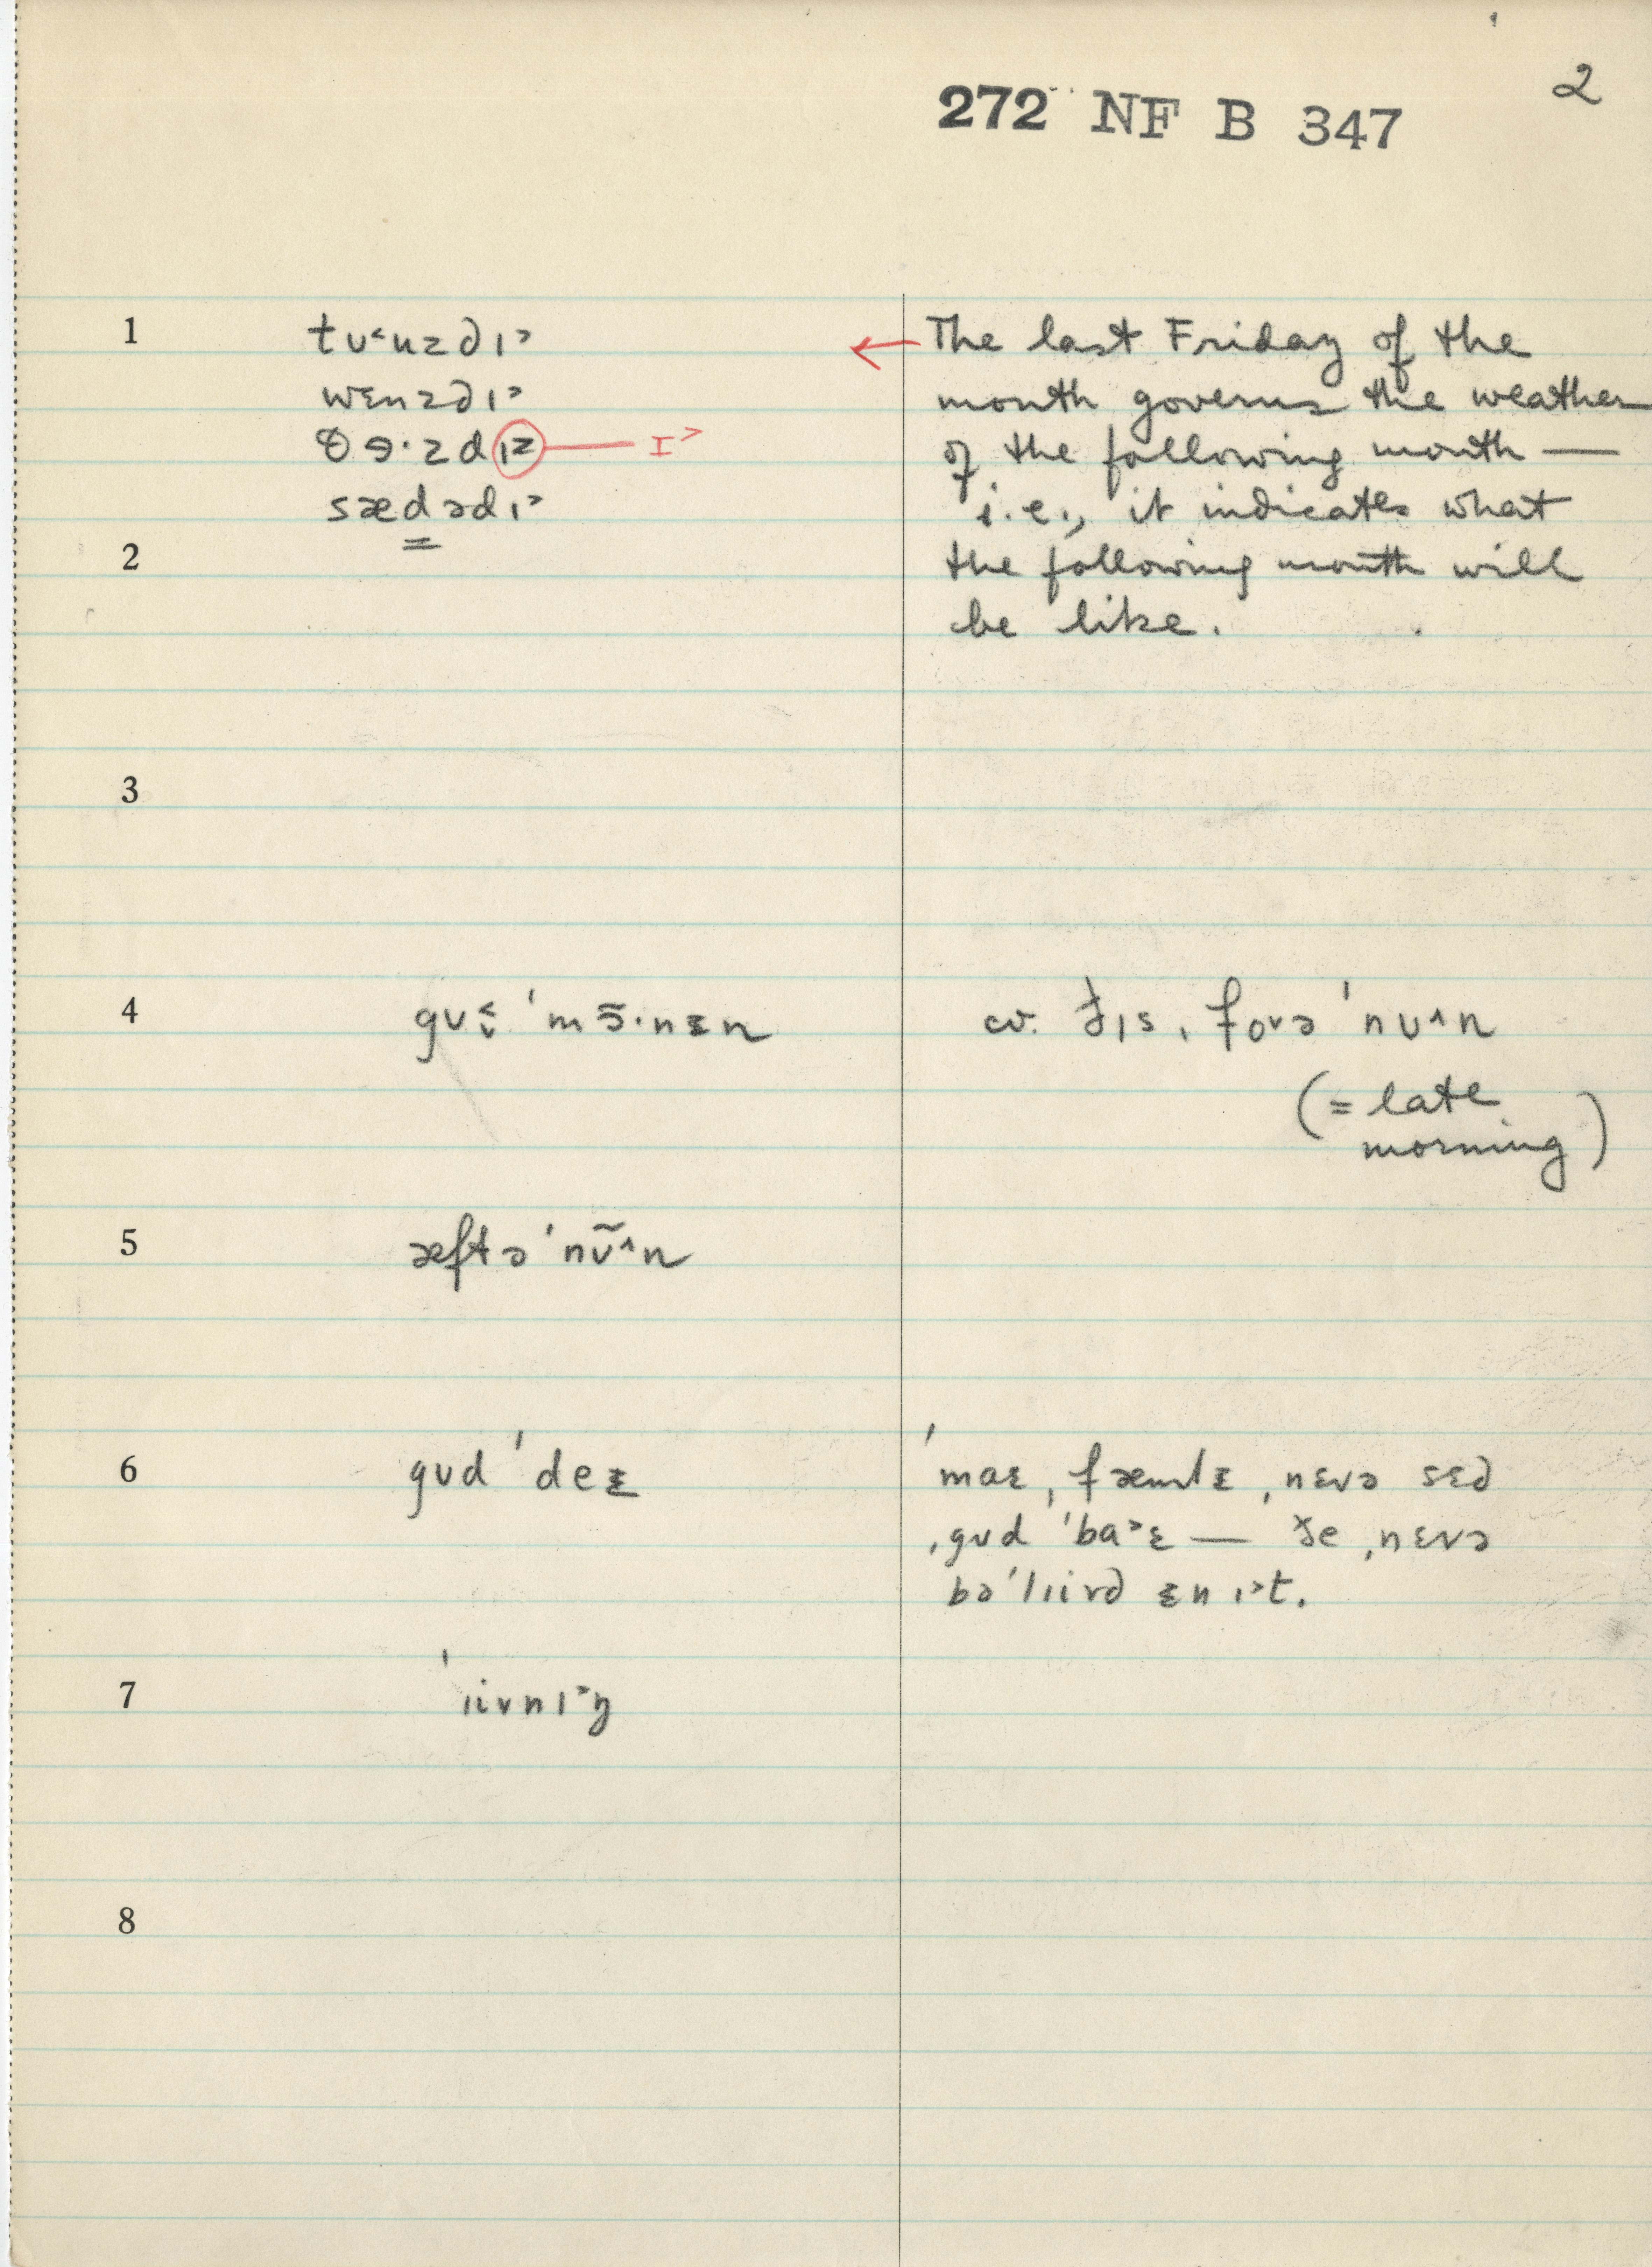 2
272 NF B 347
1
tʊ˂uzdɪ˃
wɛnzdɪ˃
θɜ·zdɪz I˃
sædədɪ˃
The last Friday of the
month governs the weather
of the following month —
i.e., it indicates what
the following month will
be like.
2
3
4
ˈmɔ̃·nɪn
cv. ðɪs ˌfoʊə ˈnʊ˄n
(= late
morning)
5
æftə ˈnʊ̃˄n
6
gʊd ˈdeɪ
ˈmaɛ ˌfæmlɪ ˌnɛvə sɛd
ˌgʊd ˈba˃ɛ — ðe ˌnɛvə
bəˈlɪivd ɪn ɪ˃t.
7
ˈɪivnɪ˃ŋ
8